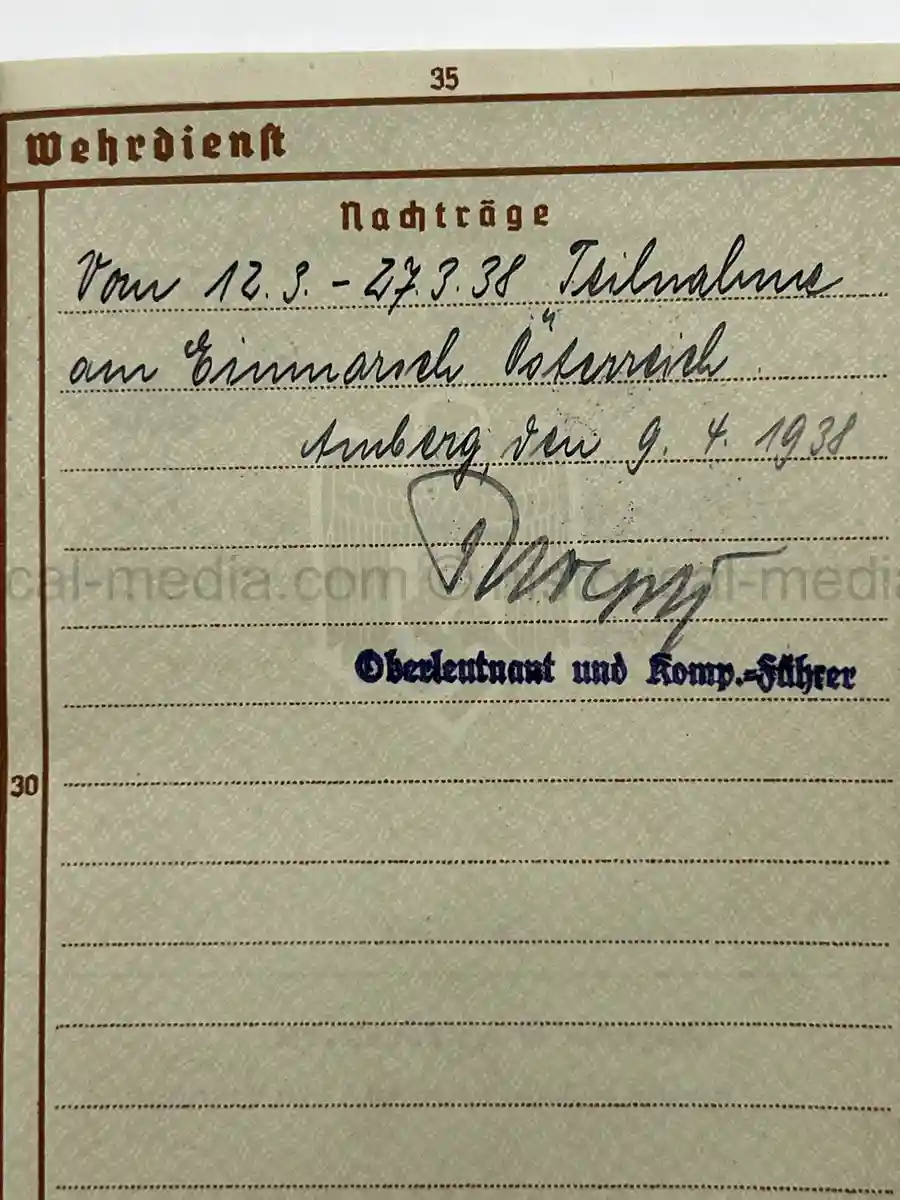 35
Wehrdienst
Nachträge
Vom 12.3. - 27.3.38 Teilnahme
am Einmarsch Österreich.
Amberg, den 9. 4. 1938
cal-media.com © historical-medi
Oberleutnant und Komp.=Führer
30